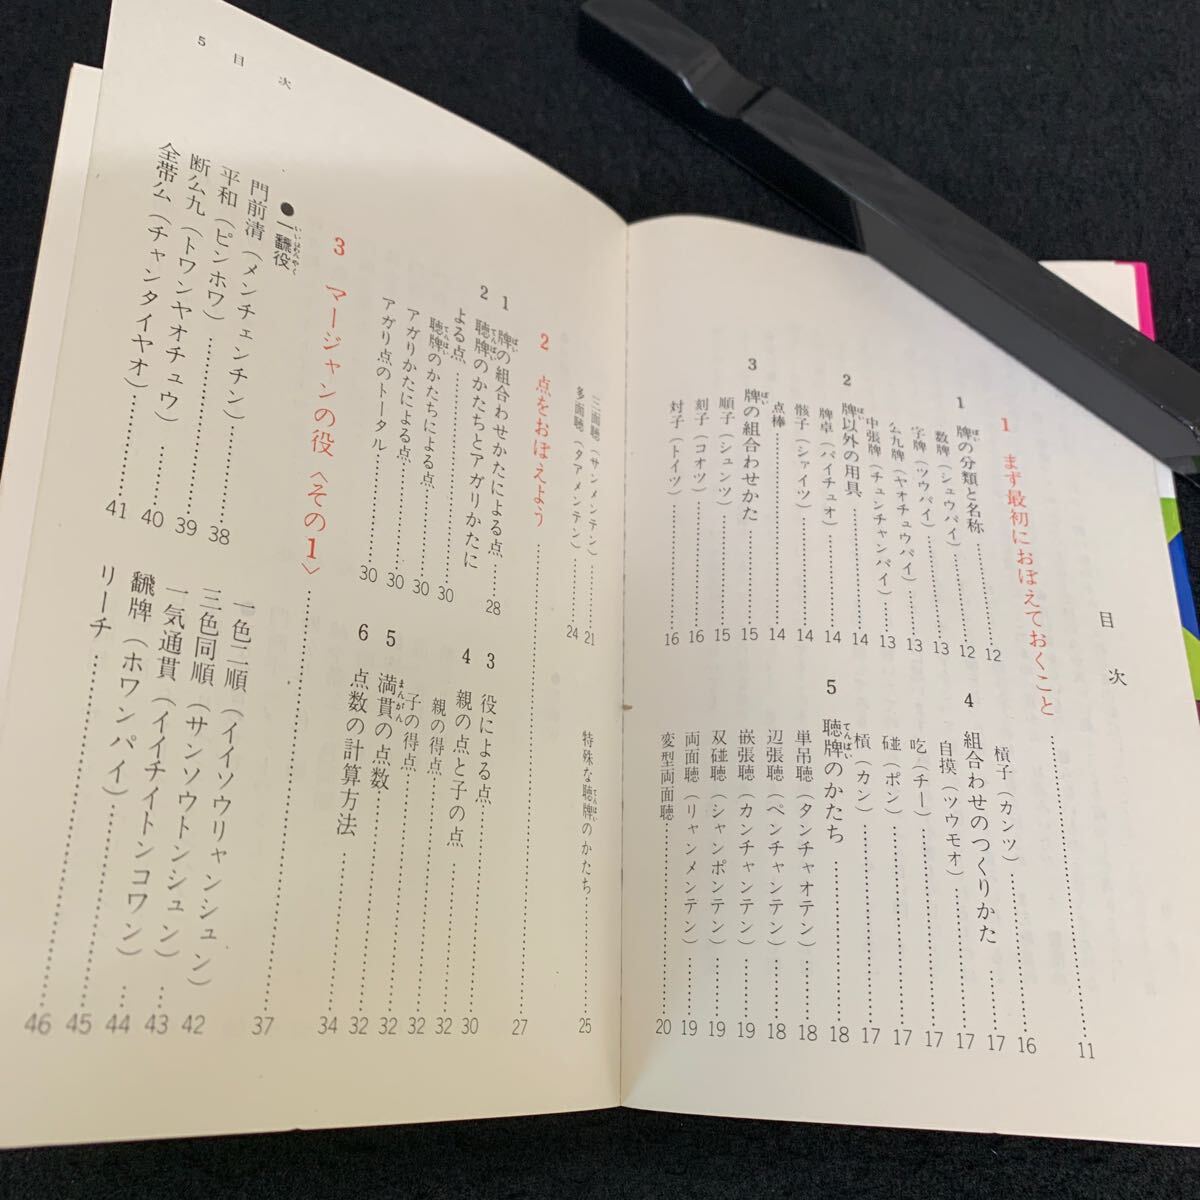 目次
1 まず最初におぼえておくこと……11
1 牌の分類と名称……12
数牌（シュウパイ）……12
字牌（ツウパイ）……13
么九牌（ヤオチュウパイ）……13
中張牌（チュンチャンパイ）……13
2 牌以外の用具……14
牌卓（パイチュオ）……14
骰子（シァイツ）……14
点棒……14
3 牌の組合わせかた……15
順子（シュンツ）……15
刻子（コオツ）……16
対子（トイツ）……16
槓子（カンツ）……16
4 組合わせのつくりかた……17
自摸（ツウモオ）……17
吃（チー）……17
碰（ポン）……17
槓（カン）……17
5 聴牌のかたち……18
単吊聴（タンチャオテン）……18
辺張聴（ペンチャンテン）……18
嵌張聴（カンチャンテン）……19
双碰聴（シャンポンテン）……19
両面聴（リャンメンテン）……19
変型両面聴……20
5 目次
三面聴（サンメンテン）……21
多面聴（タアメンテン）……24
特殊な聴牌のかたち……25
2 点をおぼえよう……27
1 牌の組合わせかたによる点……28
2 聴牌のかたちとアガりかたに
よる点……30
聴牌のかたちによる点……30
アガりかたによる点……30
アガり点のトータル……30
3 役による点……30
4 親の点と子の点……32
親の得点……32
子の得点……32
5 満貫の点数……32
6 点数の計算方法……34
3 マージャンの役〈その1〉……37
●一飜役
門前清（メンチェンチン）……38
平和（ピンホワ）……39
断么九（トワンヤオチュウ）……40
全帯么（チャンタイヤオ）……41
一色二順（イイソウリャンシュン）……42
三色同順（サンソウトンシュン）……43
一気通貫（イイチイトンコワン）……44
飜牌（ホワンパイ）……45
リーチ……46